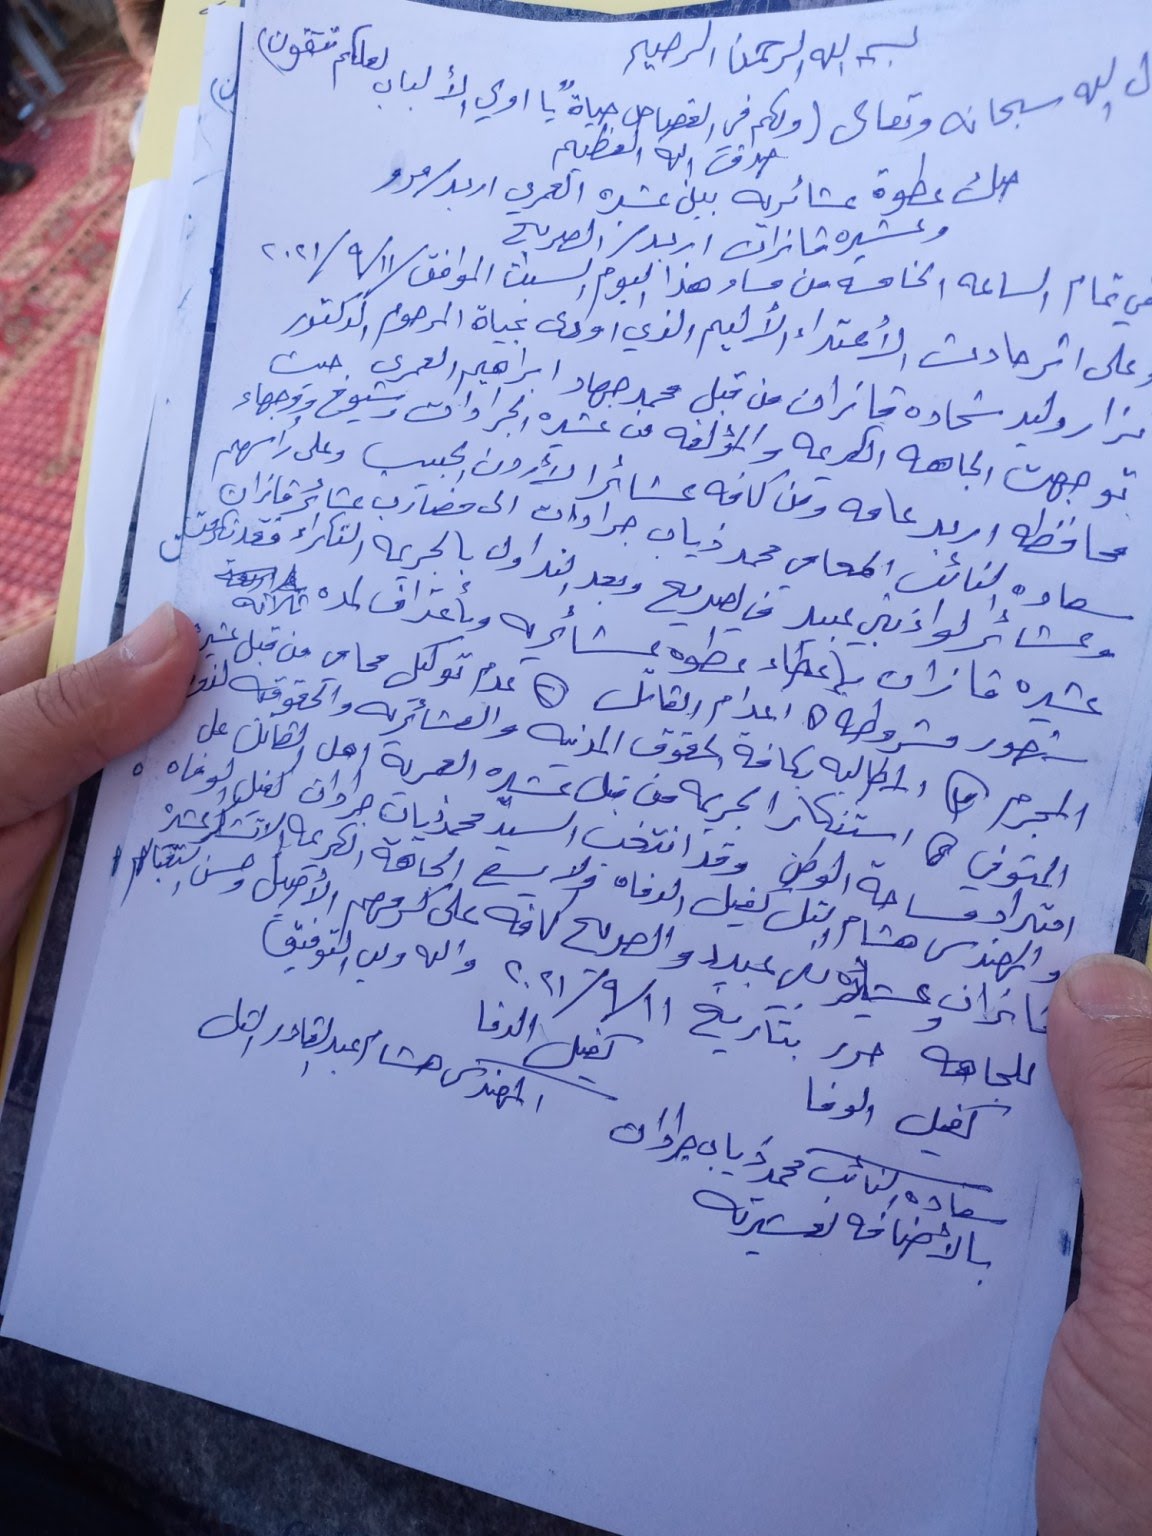 بسم الله الرحمن الرحيم
ل الله سبحانه وتعالى (ولكم في القصاص حياة يا اولي الألباب لعلكم تتقون)
صدق الله العظيم
صك عطوة عشائريه بين عشيره العمري اربد/
وعشيره قازان اربد/ الصريح
في تمام الساعه الخامسه من مساء هذا اليوم السبت الموافق ٢٠٢١/٩/١١
وعلى اثر حادث الأعتداء الأليم الذي اودى بحياة المرحوم الدكتور
نزار وليد شحاده قازان من قبل محمد جهاد ابراهيم العمري حيث
توجهت الجاهه الكريمه والمؤلفه من عشيره الجراوات وشيوخ ووجهاء
محافظه اربد عامه ومن كافه عشائر الأردن الحبيب وعلى رأسهم
سعاده النائب المحامي محمد ذياب جراوات الى مضارب عشائر قازان
وعشائر لواء بني عبيد في الصريح وبعد التداول بالجريمه النكراء فقد تكرمت
عشيره قازان بإعطاء عطوه عشائريه وبأعتراف لمده ثلاثه
شهور مشروطه اعدام القاتل عدم توكيل محامي من قبل عشيرة
المجرم المطالبه بكافة الحقوق المدنيه والعشائريه والحقوقيه لذوي
المتوفي استنكار الجريمه من قبل عشيره العمرية اهل القاتل على
امتداد مساحة الوطن وقد انتخب السيد محمد ذياب جراوات كفيل الوفاه
والمهندس هشام التل كفيل الدفاه ولا يسع الجاهة الكريمه الا تشكر عشيرة
قازان وعشائر بني عبيد والصريح كافه على كرمهم الأصيل وحسن استقبالهم
للجاهه حرر بتاريخ ٢٠٢١/٩/١١ والله ولي التوفيق
كفيل الدفا
المهندس هشام عبدالقادر التل
كفيل الوفا
سعاده النائب محمد ذياب جراوات
بالأضافه لعشيرته